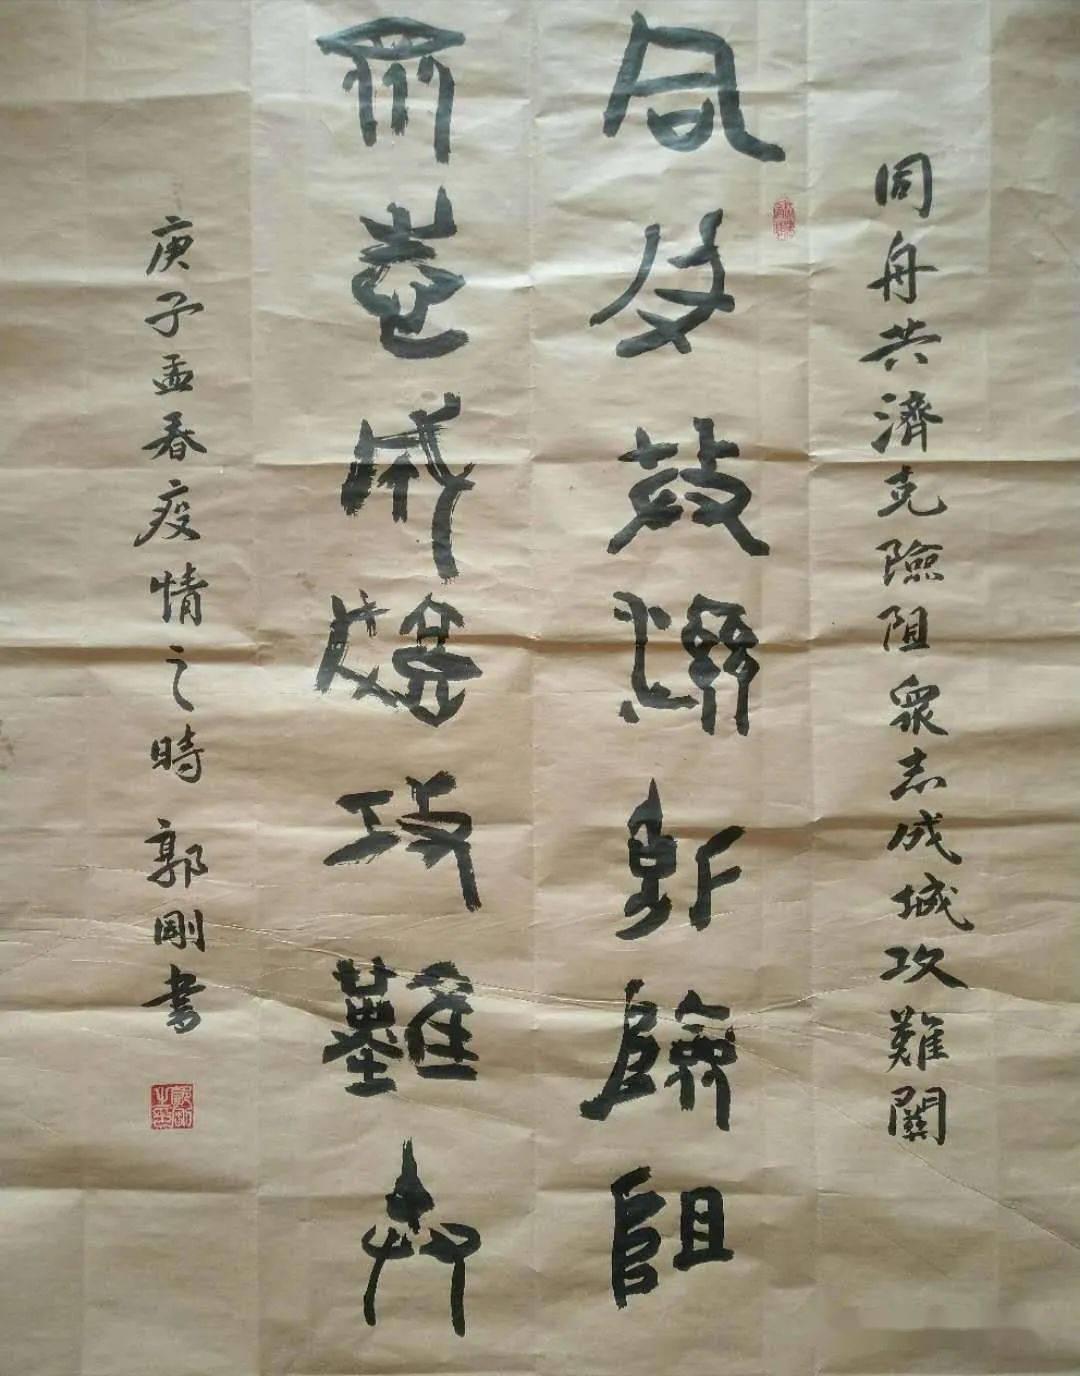 同舟共濟克險阻衆志成城攻難關
同舟共濟克險阻
衆志成城攻難關
庚子孟春疫情之時郭剛書
郭剛之印